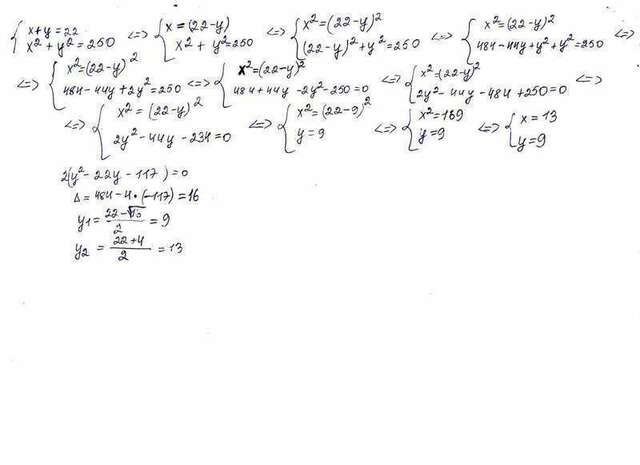 { x+y=22 x²+y²=250 <=> { x=(22-y) x²+y²=250 <=> { x²=(22-y)² (22-y)²+y²=250 <=> { x²=(22-y)² 484-44y+y²+y²=250 <=>
<=> { x²=(22-y)² 484-44y+2y²=250 <=> { x²=(22-y)² 484+44y-2y²-250=0 <=> { x²=(22-y)² 2y²-44y-484+250=0 <=>
<=> { x²=(22-y)² 2y²-44y-234=0 <=> { x²=(22-9)² y=9 <=> { x²=169 y=9 <=> { x=13 y=9
2(y²-22y-117)=0
Δ=484-4•(-117)=16
y1=22-√16/2=9
y2=22+4/2=13